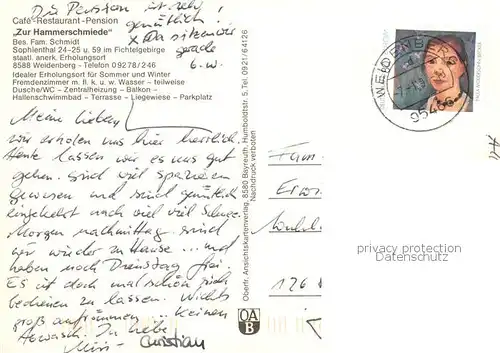 Die Pension ist sehr
gemütlich!
x Da sitzen wir
gerade
Café-Restaurant-Pension
"Zur Hammerschmiede"
Bes. Fam. Schmidt
Sophienthal 24-25 u. 59 im Fichtelgebirge
staatl. anerk. Erholungsort
8588 Weidenberg - Telefon 0 92 78 / 2 46
Idealer Erholungsort für Sommer und Winter
Fremdenzimmer m. fl. k. u. w. Wasser – teilweise
Dusche/WC – Zentralheizung – Balkon –
Hallenschwimmbad – Terrasse – Liegewiese – Parkplatz
Meine Lieben,
wir erholen uns hier herrlich.
Heute lassen wir es uns gut
gehen. Sind viel spazieren
gewesen und sind gemütlich
eingekehrt nach viel viel
Morgen nachmittag sind
wir wieder zu Hause ... und
haben noch Dienstag frei.
Es ist doch mal schön sich
bedienen zu lassen. Nichts
groß aufräumen ... keinen
Abwasch. In Liebe
Christian
Oberfr. Ansichtskartenverlag, 8580 Bayreuth, Humboldtstr. 5, Tel. 09 21 / 6 41 26
Nachdruck verboten
OA
B
WEIDENBERG
95466
Fam.
126
privacy protection
Datenschutz